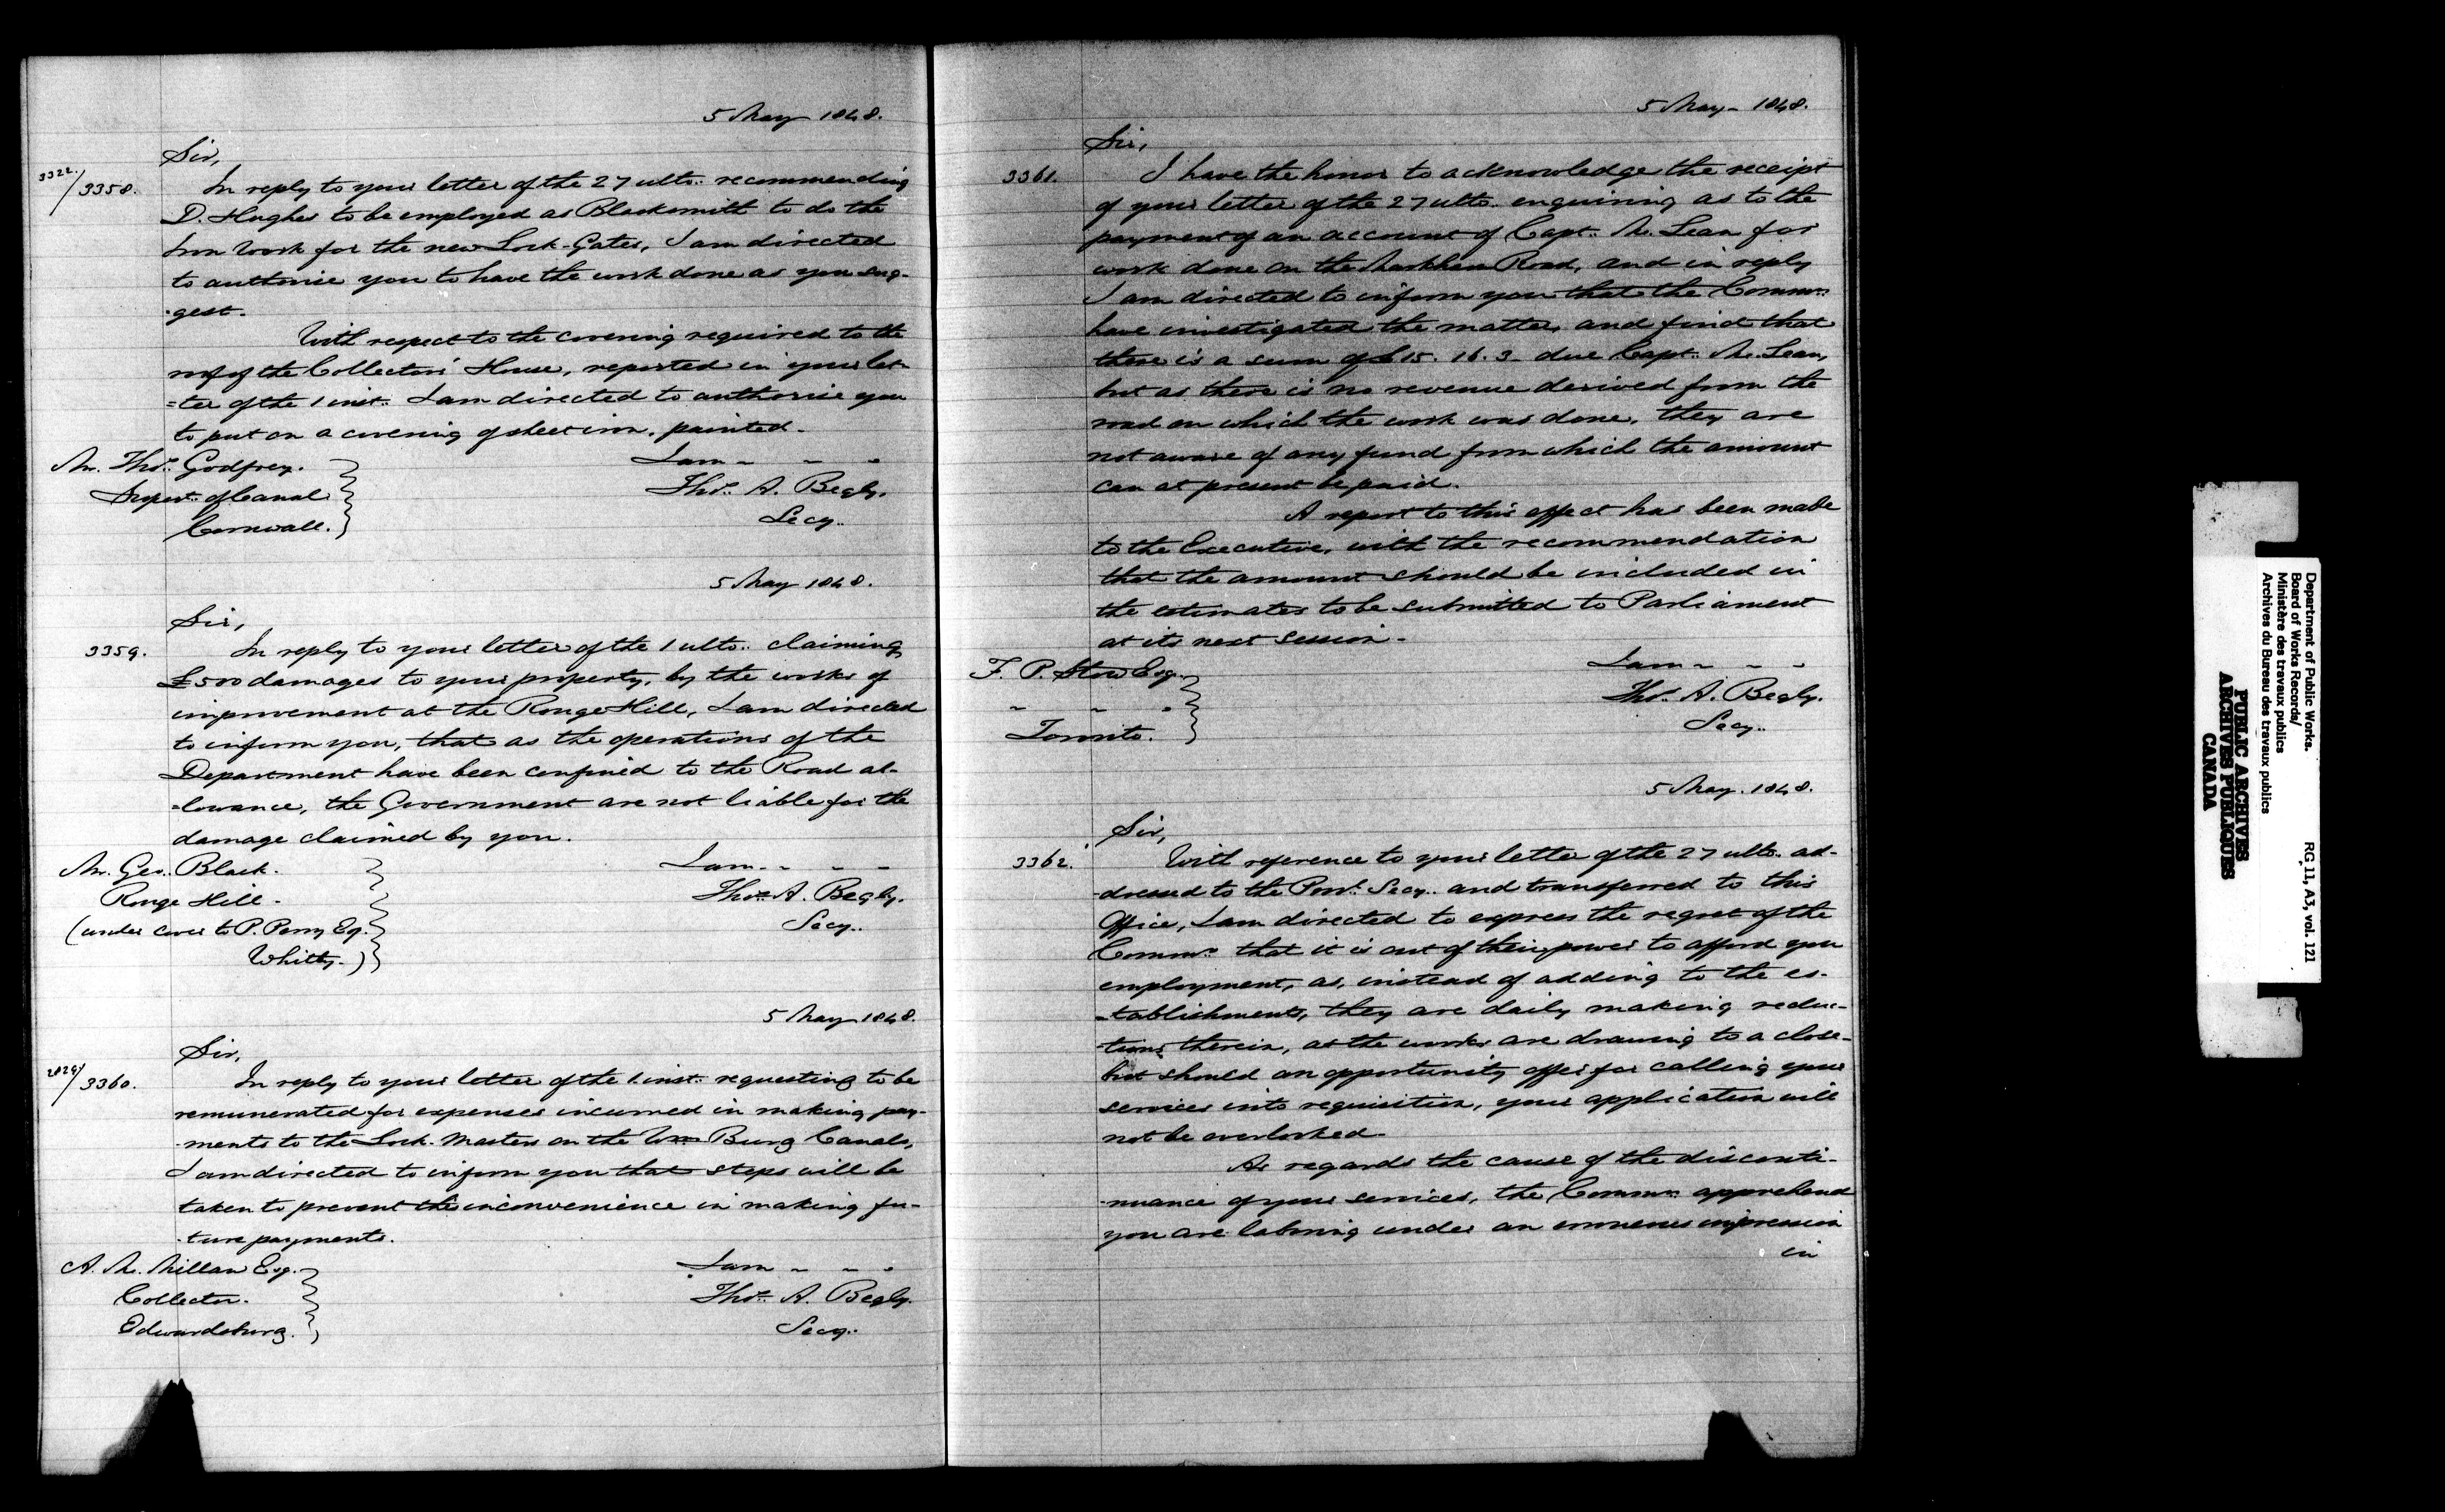 5 May 1848.
Sir,
3322./3358. In reply to your letter of the 27 ulto. recommending
D. Hughes to be employed as Blacksmith to do the
Iron work for the new Lock-Gates, I am directed
to authorise you to have the work done as you sug-
-gest.
With respect to the covering required to the
roof of the Collectors' House, reported in your let-
=ter of the 1 inst. I am directed to authorise you
to put on a covering of sheet iron, painted.
I am - - -
Mr. Thos. Godfrey.
Thos. A. Begly.
Supert. of Canal
Secy.
Cornwall.
5 May 1848.
Sir,
3359. In reply to your letter of the 1 ulto. claiming
£500 damages to your property, by the works of
improvement at the Rouge Hill, I am directed
to inform you, that as the operations of the
Department have been confined to the Road al-
-lowance, the Government are not liable for the
damage claimed by you.
Mr. Geo. Black.
I am - - -
Rouge Hill.
Thos. A. Begly.
(under cover to P. Perry Esq.
Secy.
Whitby.)
5 May 1848.
Sir,
2829/3360. In reply to your letter of the 1 inst. requesting to be
remunerated for expenses incurred in making pay-
-ments to the Lock-Masters on the Wms Burg Canals,
I am directed to inform you that steps will be
taken to prevent the inconvenience in making fu-
-ture payments.
A. Mc. Millan Esq.
I am - - -
Collector.
Thos. A. Begly.
Edwardsburg.
Secy.
5 May - 1848.
Sir,
3361. I have the honor to acknowledge the receipt
of your letter of the 27 ulto. enquiring as to the
payment of an account of Capt. Mc. Lean for
work done on the Markham Road, and in reply
I am directed to inform you that the Commrs.
have investigated the matter, and find that
there is a sum of £15. 16. 3 due Capt. Mc. Lean,
but as there is no revenue derived from the
road on which the work was done, they are
not aware of any fund from which the amount
can at present be paid.
A report to this effect has been made
to the Executive, with the recommendation
that the amount should be included in
the estimates to be submitted to Parliament
at its next session.
I am - - -
F. P. Stow Esq.
Thos. A. Begly.
- - -
Secy.
Toronto.
5 May. 1848.
Sir,
3362. With reference to your letter of the 27 ulto. ad-
-dressed to the Provl. Secy. and transferred to this
Office, I am directed to express the regret of the
Commrs. that it is out of their power to afford you
employment, as, instead of adding to the es-
-tablishments, they are daily making reduc-
-tions therein, as the works are drawing to a close -
but should an opportunity offer for calling your
services into requisition, your application will
not be overlooked.
As regards the cause of the disconti-
-nuance of your services, the Commrs. apprehend
you are laboring under an erroneous impression
in
Department of Public Works.
Board of Works Records/
Ministère des travaux publics
Archives du Bureau des travaux publics
RG 11, A3, vol. 121
PUBLIC ARCHIVES
ARCHIVES PUBLIQUES
CANADA